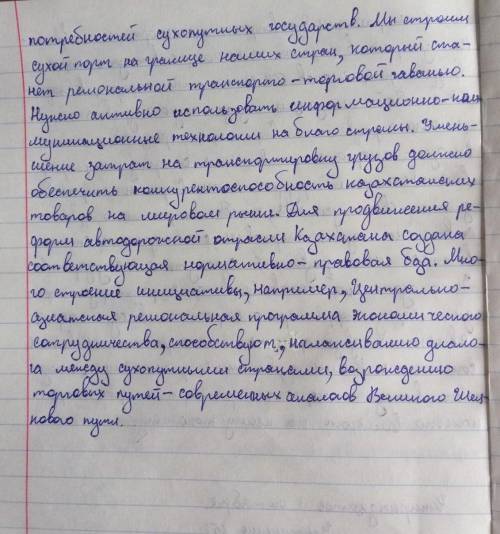 потребностей сухопутных государств. Мы строим
сухой порт на границе наших стран, который ста-
нет региональной транспортно-торговой гаванью.
Нужно активно использовать информационно-ком
муникационные технологии на благо страны. Умень-
шение затрат на транспортировку грузов должно
обеспечить конкурентоспособность казахстанских
товаров на мировом рынке. Для продвижения ре-
форм автодорожной отрасли Казахстана создана
соответствующая нормативно-правовая база. Мно-
го строение инициативы, например, Центрально-
азиатская региональная программа экономического
сотрудничества, способствуют, налаживанию диало-
га между сухопутными странами, возрождению
торговых путей-современных аналогов Великого Шел
кового пути.